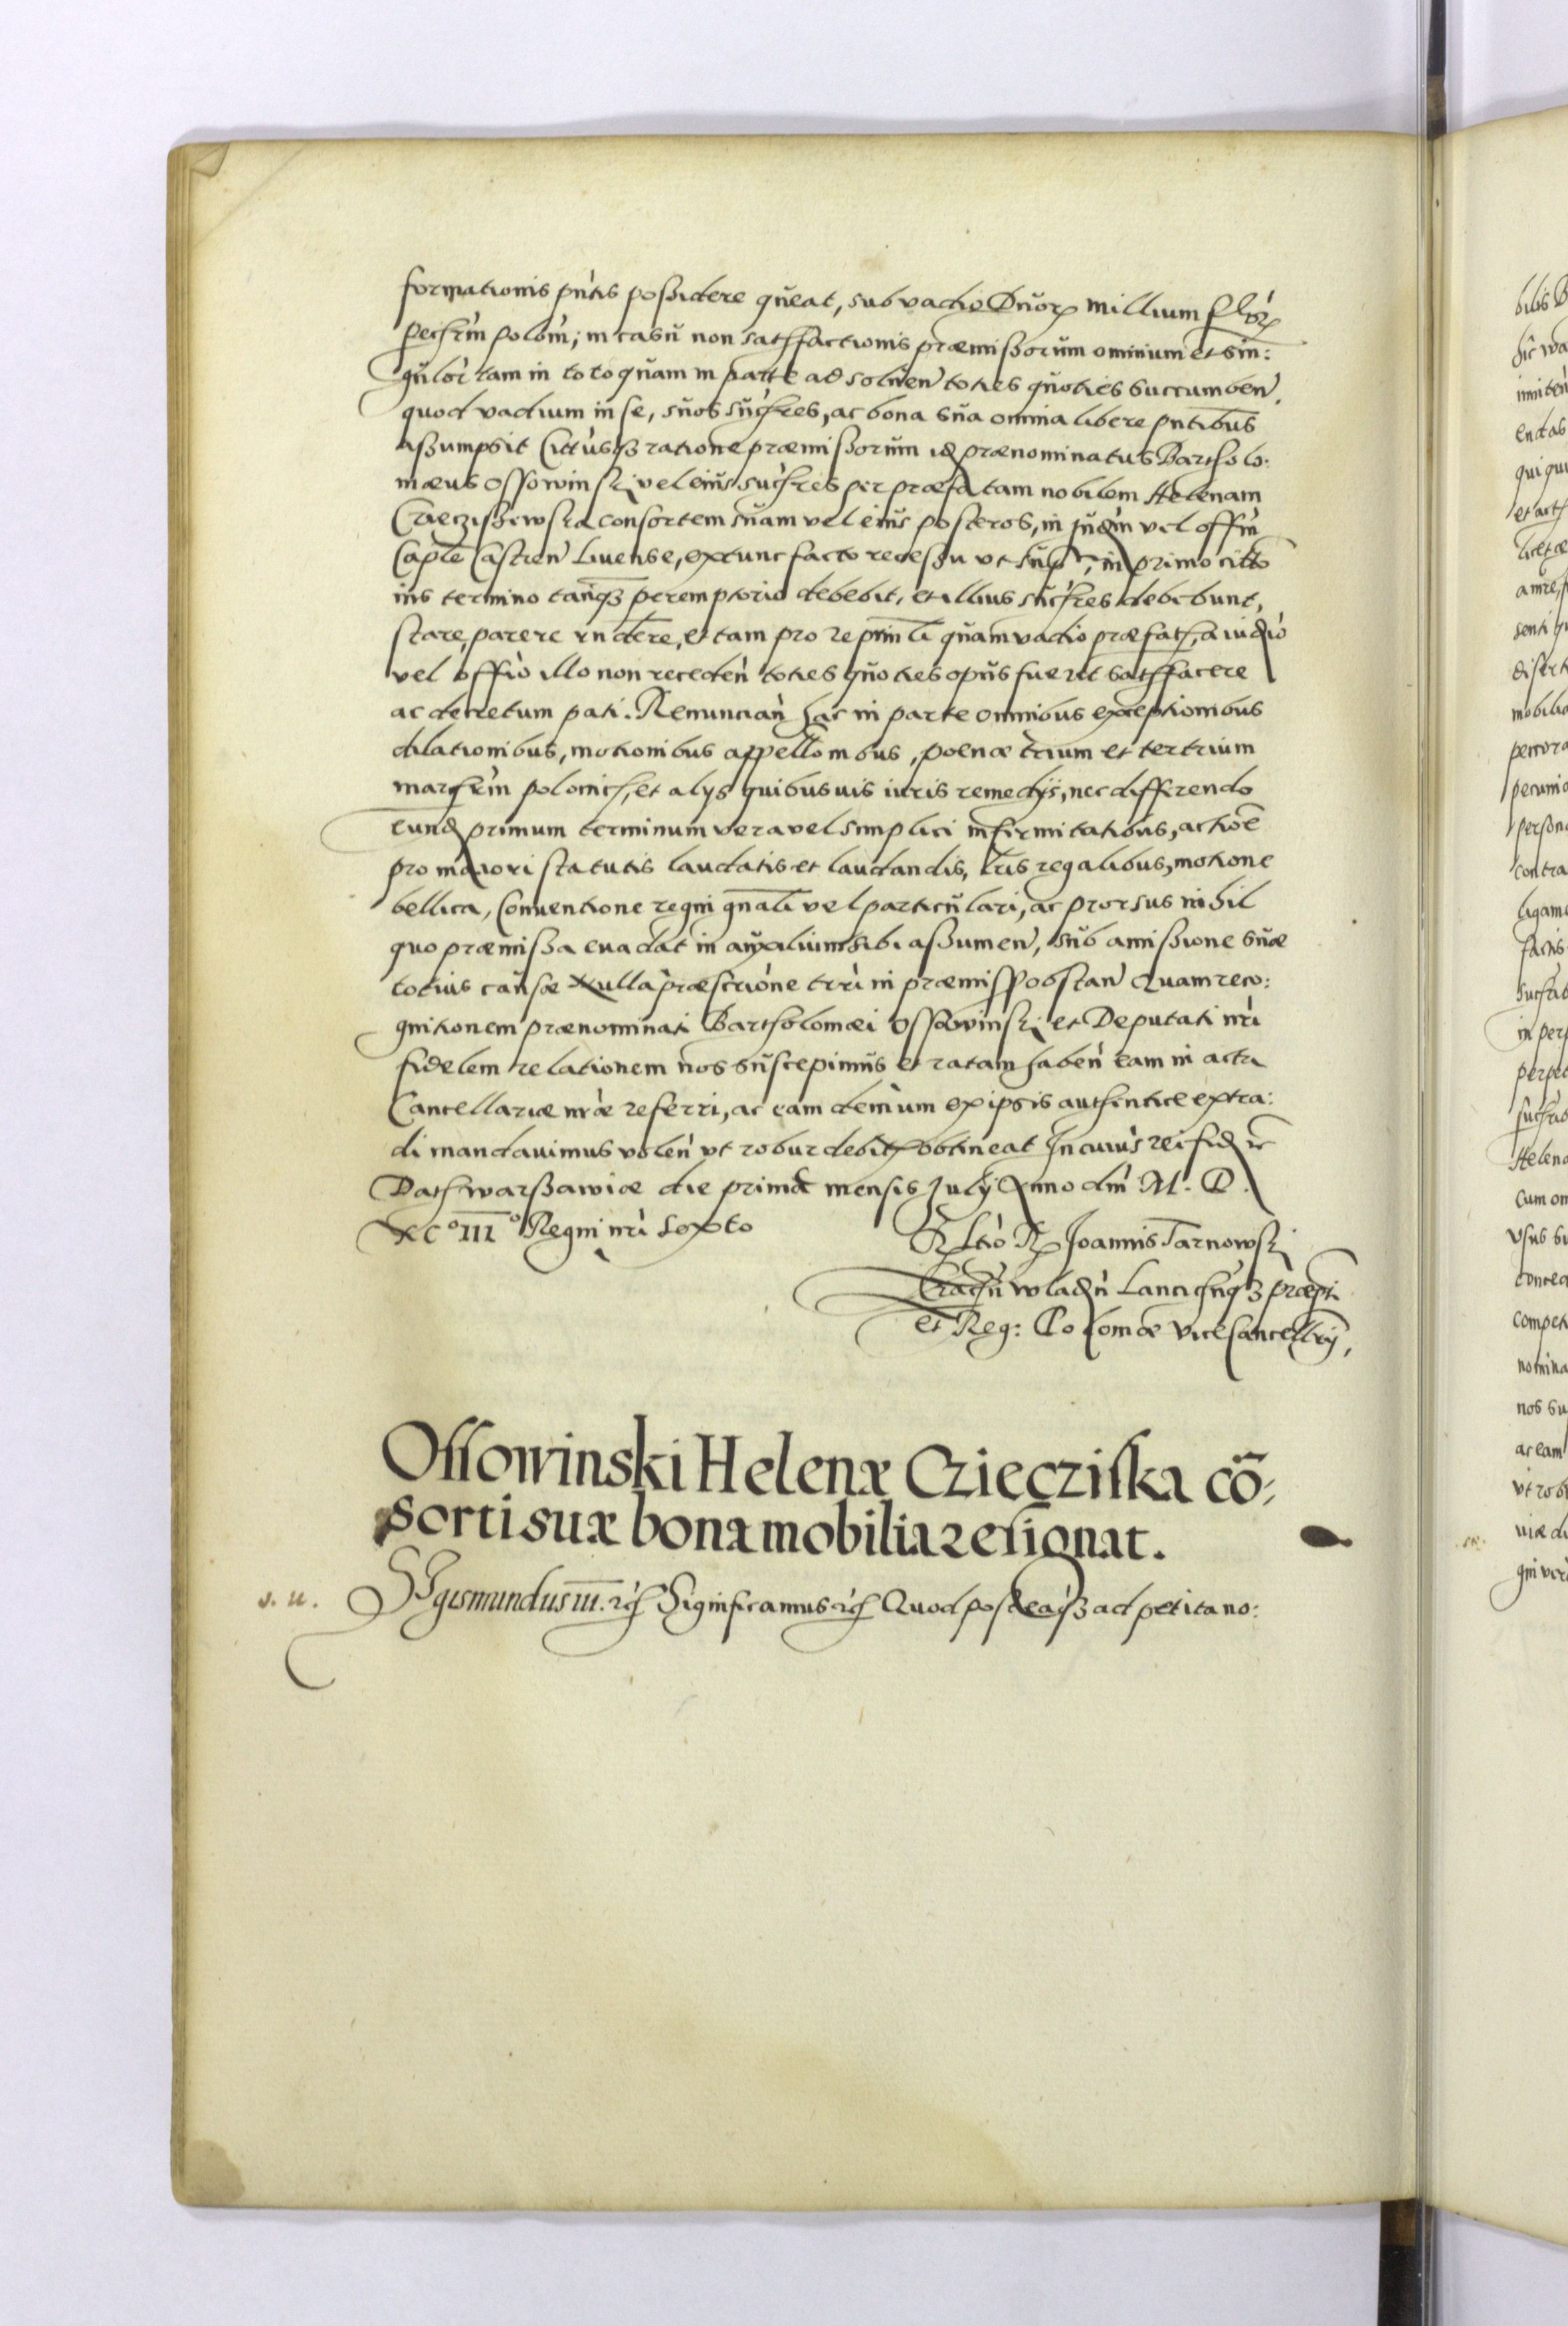 formationis pñtis possidere queat, sub vadio Duor millium flor
pecħin polon̄; in casu non satħfactionis præmissorum omnium et sin:
gulor tam in toto quam in parte ad solven̄ toties quoties succumben̄.
quod vadium in se, suos succħres, ac bona sua omnia libere pñtibus
assumpsit Cittusqȝ ratione præmissorum id prænominatus Bartholo:
mæus Ossowinski vel eius succħres per præfatam nobilem Helenam
consortem suam vel eius posteros, in Judin̄ vel offin̄
Caplē Castren̄ Livense, extunc facto recessu vt supra, in primo citto
nis termino tanqȝ peremptorio debebit, et illius succħres debebunt,
stare, parere rñdere, et tam pro re prin̄li quam vadio præfatħ, a iudio
vel offio illo non receden̄ toties quoties opus fuerit satħfacere
ac decretum pati. Renuncian̄ hac in parte omnibus exceptionibus
dilationibus, motionibus appellōnibus, poenæ trium et tertrium
marcħin polonicħ, et alys quibusuis iuris remedijs, nec differendo
eund primum terminum vera vel simplici infirmitatibus, actiōe
pro maiori statutis laudatis et laudandis, Lris regalibus, motione
bellica, Conuentione regni gñali vel particulari, ac prorsus nihil
quo præmissa euadat in auxilium sibi assumen̄, sub amissione suæ
totius causæ nulla præscriōne trri in præmiss obstan̄ Quam reco:
gnitionem prænominati Bartholomæi Ossowinski et Deputati nri
fidelem relationem nos suscepimus et ratam haben̄ eam in acta
Cancellariæ nræ referri, ac eam demum ex ipsis authentice extra:
di mandauimus volen̄ vt robur debit obtineat In cuius rei fid rc
Datħ warssawiæ die prima mensis July Anno dn̄i M. D.
XC° III° Regni nri Sexto
R ltio R Joannis Tarnowski
Cracħn̄ wladn̄ Lancicħnqȝ præpti
et Reg: Poloniæ ViceCancellrij,
Ossowinski Helenæ Cziecziska cō-
sorti suæ bona mobilia resignat.
s. u.
Sigismundus III. rcħ Significamus rcħ Quod posteaqȝ ad petita no: